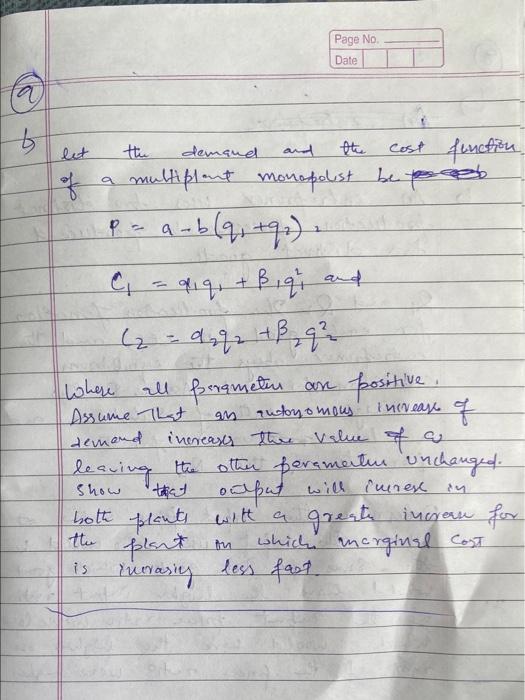 Page No.
Date
a
b
let the demand and the cost function
of a multiplant monopolist be
P = a - b(q₁ + q₂),
C₁ = α₁q₁ + β₁q₁² and
C₂ = α₂q₂ + β₂q₂²
Where all parameters are positive.
Assume that an autonomous increase of
demand increases the value of a
leaving the other parameters unchanged.
Show that output will increse in
both plants with a greate increase for
the plant in which marginal cost
is increasing less fast.